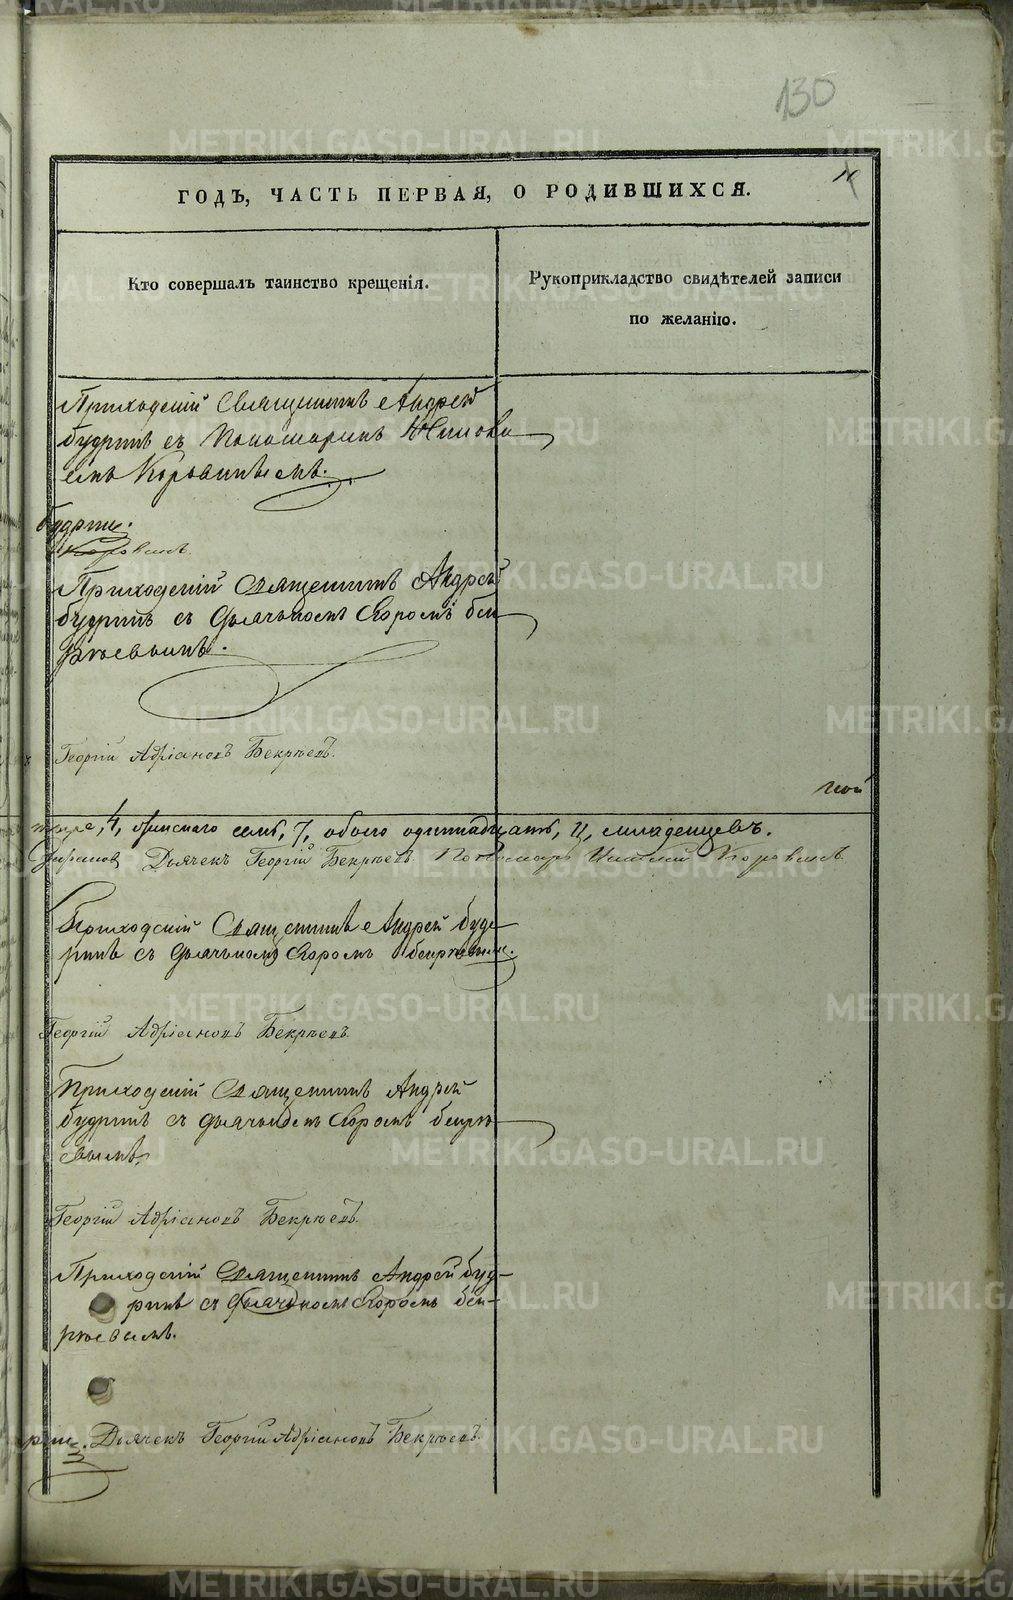 130
11
ГОДЪ, ЧАСТЬ ПЕРВАЯ, О РОДИВШИХСЯ.
Кто совершалъ таинство крещенія.
Рукоприкладство свидѣтелей записи
по желанію.
Приходскій Священникъ Андрей
Будринъ съ Пономаремъ
Коровинымъ.
Будрин.
Коровинъ.
Приходскій Священникъ Андрей
Будринъ съ Дьячькомъ Егоромъ Бек
рѣевымъ.
Георгій Адріановъ Бекрѣевъ.
ской
4, женскаго семь, 7, обоего одиннадцать, 11, младенцевъ.
Дьячекъ Георгій Бекрѣевъ Пономарь Коровинъ
Приходскій Священникъ Андрей Буд
ринъ съ Дьячькомъ Егоромъ Бекрѣевым.
Георгій Адріановъ Бекрѣевъ.
Приходскій Священникъ Андрей
Будринъ съ Дьячькомъ Егоромъ Бекрѣ
евымъ.
Георгій Адріановъ Бекрѣевъ.
Приходскій Священникъ Андрей Буд-
ринъ съ Дьячькомъ Егоромъ Бек-
рѣевымъ.
Дьячекъ Георгій Адріановъ Бекрѣевъ.
METRIKI.GASO-URAL.RU